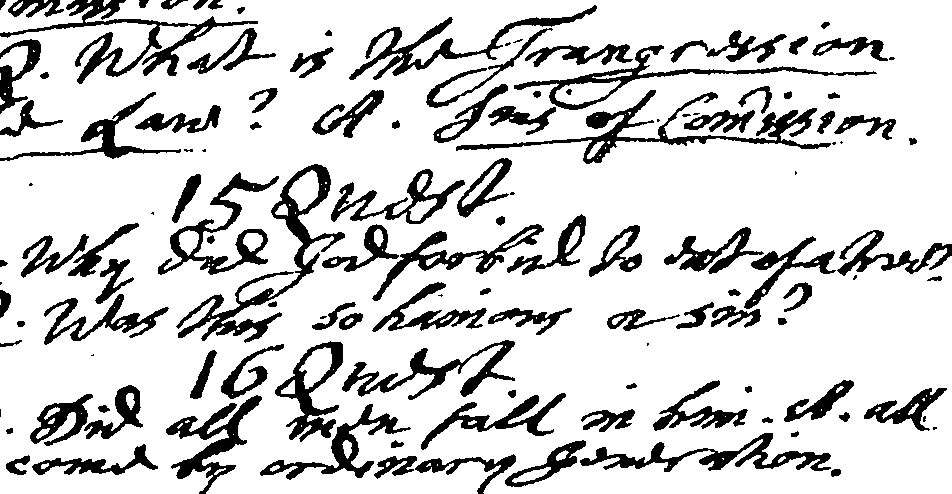 Q. What is the Trangression
Law? A. Sins of Comission.
15 Quest.
Why did God foorbid to eat of a tree?
Q. Was this so hainous a sin?
16 Quest.
Did all men fall in him. A. all
come by ordinary Generation.